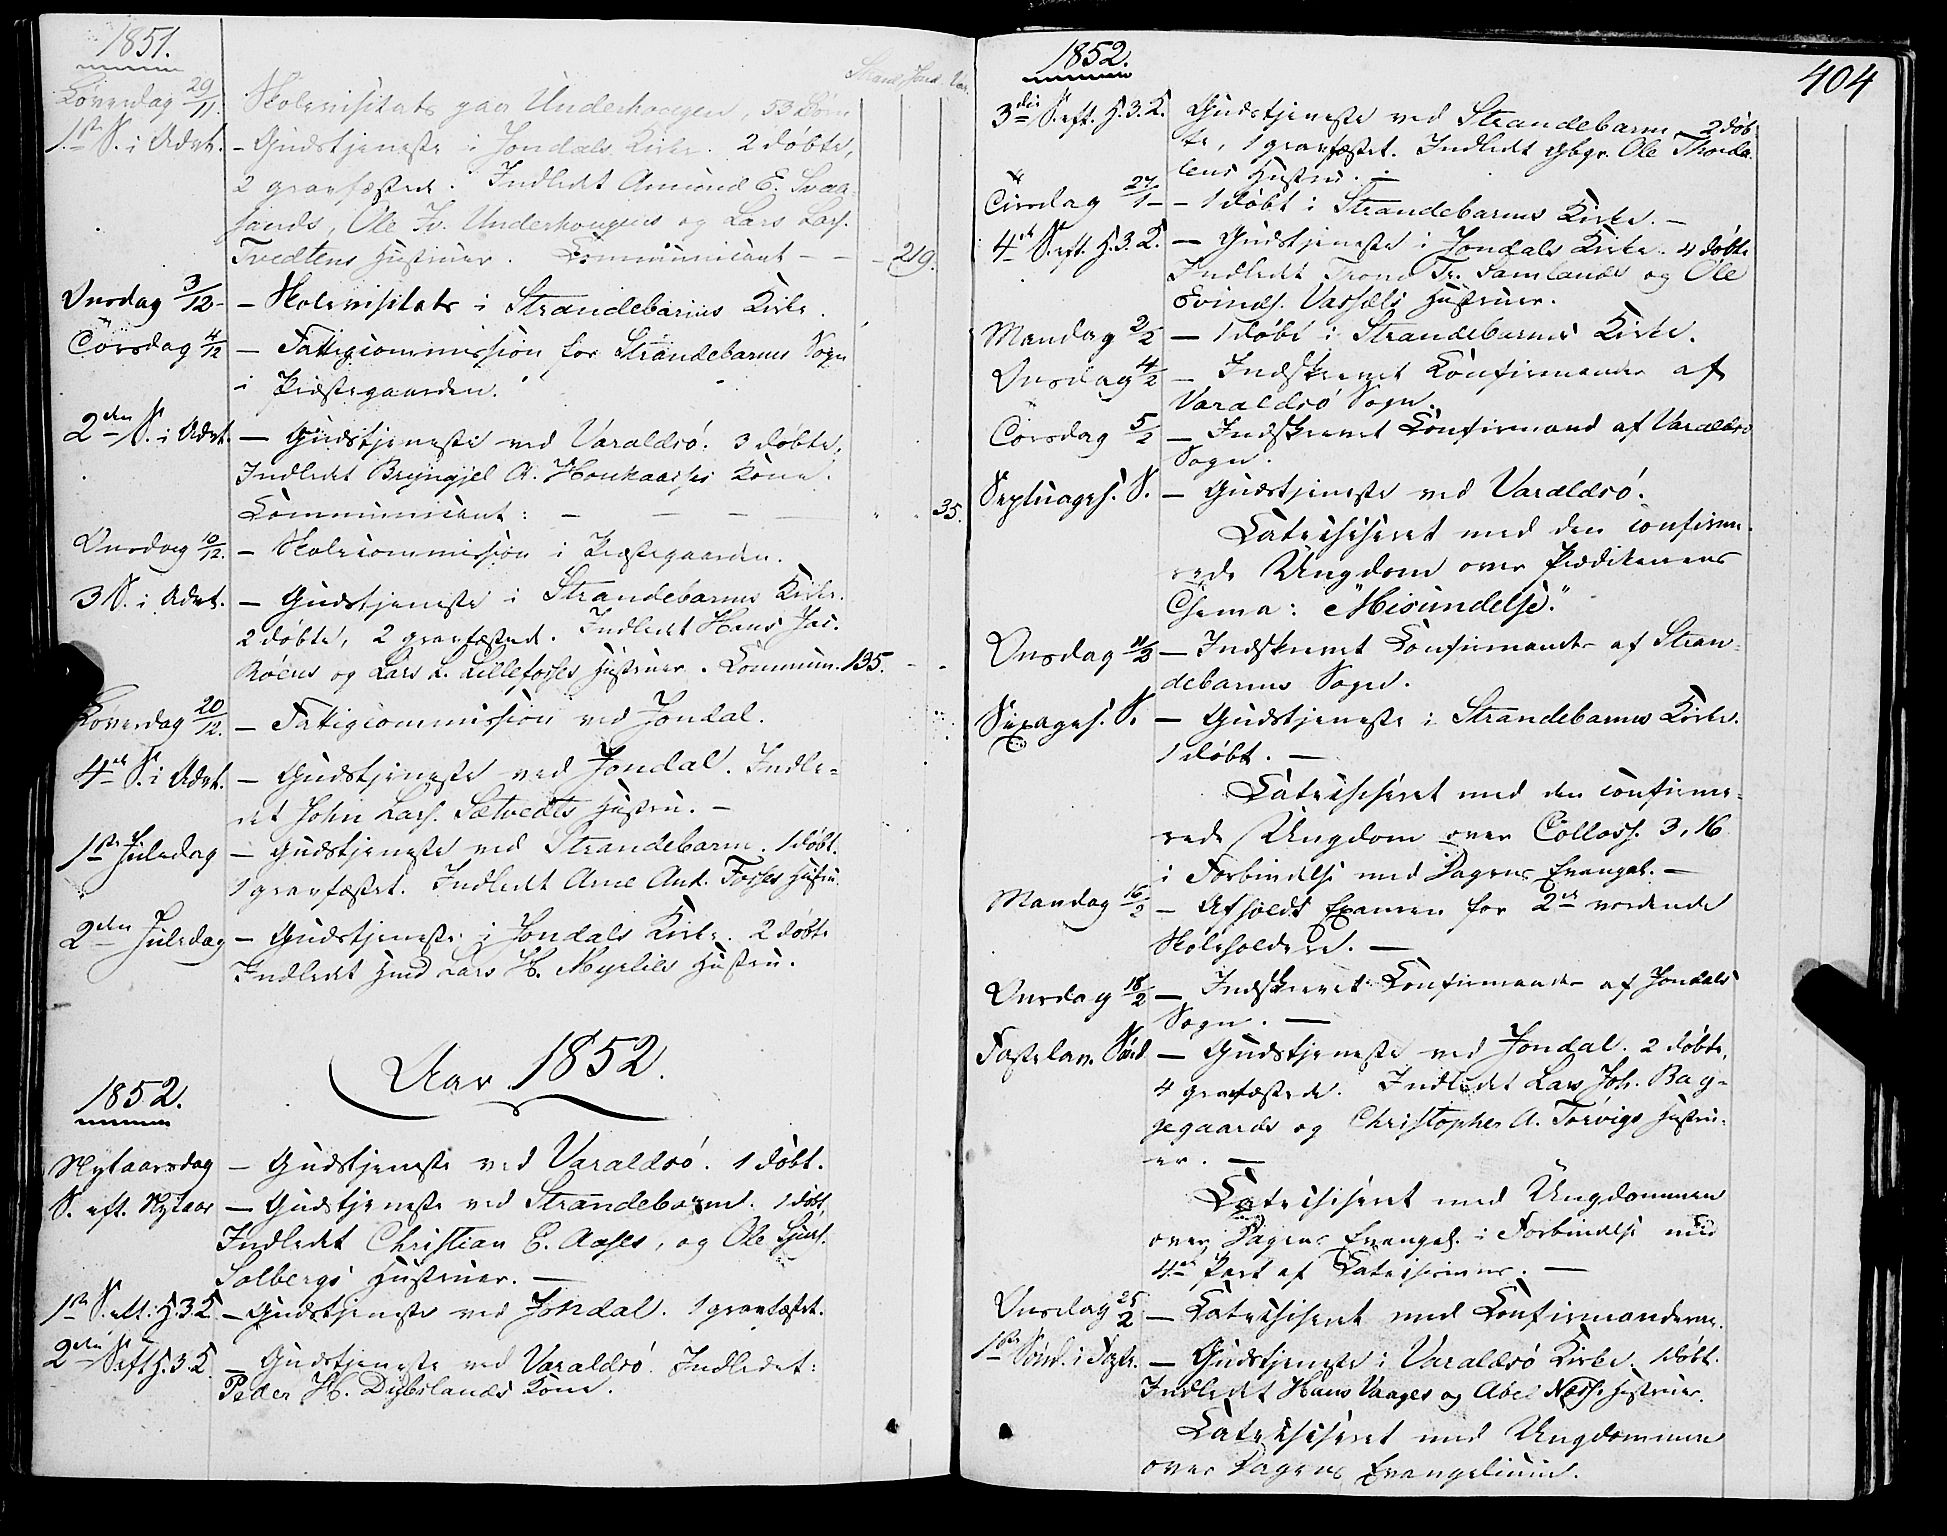 1851.
Strand. Jond. Var.
Løverdag 29/11. Skolevisitats paa Underhougen, 53 Børn
1ste S. i Advt. - Gudstjeneste i Jondals Kirke. 2 døbte,
2 gravfæstede. Indledt Amund E. Svaa-
sands, Ole Iv. Underhougens og Lars Lars.
Tvedtens Hustruer. Communicant - - - 219.
Onsdag 3/12 - Skolevisitats i Strandebarms Kirke.
Torsdag 4/12 - Fattigcommission for Strandebarms Sogn
i Præstegaarden.
2den S. i Advt. - Gudstjeneste ved Varaldsö. 3 døbte,
Indledt Bryngjel A. Kone.
Communicant: - - - - 35.
Onsdag 10/12. - Skolecommission i Præstegaarden.
3 S. i Advt. - Gudstjeneste i Strandebarms Kirke.
2 døbte, 2 gravfæstede. Indledt Hans Jac.
Roens og Lars L. Lillefosses Hustruer. Commun. 135. - -
Løverdag 20/12. - Fattigcommission ved Jondal.
4de S. i Advt. - Gudstjeneste ved Jondal. Indle-
det John Lars. Sætvedts Hustru. -
1ste Juledag - Gudstjeneste ved Strandebarm. 1 døbt.
1 gravfæstet. Indledt Arne And. Fosses Hustru
2den Juledag - Gudstjeneste i Jondals Kirke. 2 døbte
Indledt Hmd Lars H. Myrlies Hustru.
Aar 1852.
1852.
Nytaarsdag - Gudstjeneste ved Varaldsö. 1 døbt.
S. eft. Nytaar - Gudstjeneste ved Strandebarm. 1 døbt,
Indledt Christian E. Aases, og Ole
Solbergs Hustruer. -
1ste S. eft. H. 3 K. - Gudstjeneste ved Jondal. 1 gravfæstet.
2den S. eft H. 3. K. - Gudstjeneste ved Varaldsö. Indledet:
Peder H. Dybslands Kone.
1852.
404
3die S. eft. H. 3. K. Gudstjeneste ved Strandebarm, 2 døb-
te, 1 gravfæstet. Indledt Gbgr. Ole Thorda-
lens Hustru. -
Tirsdag 27/1 - 1 døbt i Strandebarms Kirke. -
4de S. eft. H. 3. K. - Gudstjeneste i Jondals Kirke. 4 døbte
Indledt Trond Tr. Samlands og Ole
Evinds. Vassels Hustruer.
Mandag 2/2 - 1 døbt i Strandebarms Kirke.
Onsdag 4/2 - Indskrevet Confirmander af
Varaldsö Sogn.
Torsdag 5/2 - Indskrevet Confirmand af Varaldsö
Sogn.
Septuages. S. - Gudstjeneste ved Varaldsö.
Catechiseret med den confirme-
rede Ungdom over Prædikenens
Thema: "Misundelse."
Onsdag 11/2 - Indskrevet Confirmander af Stran-
debarms Sogn.
Sexages. S. - Gudstjeneste i Strandebarms Kirke.
1 døbt. -
Catechiseret med den confirme-
rede Ungdom over Colloss. 3, 16
i Forbindelse med Dagens Evangel. -
Mandag 16/2 - Afholdt Examen for 2de vordende
Skoleholdere. -
Onsdag 18/2 - Indskrevet Confirmander af Jondals
Sogn. -
Fastelav. Sönd. - Gudstjeneste ved Jondal. 2 døbte,
4 gravfæstede. Indledet Lars Joh. Bag-
gegaards og Christopher A. Torvigs Hustru-
er. -
Catechiseret med Ungdommen
over Dagens Evangel. i Forbindelse med
4de Part af Catechismus. -
Onsdag 25/2 - Catechiseret med Confirmanderne.
1ste Sönd. i Faste. - Gudstjeneste i Varaldsö Kirke. 1 døbt.
Indledt Hans Vaages og Abel Næss. Hustruer.
Catechiseret med Ungdommen
over Dagens Evangelium.